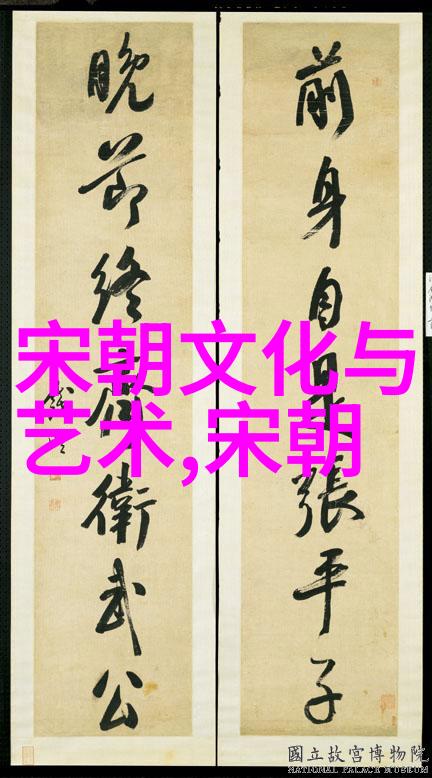 前身自是張平子
晚節終處衛武公
宋朝文化与
艺术,宋朝
國立故宮博物院
NATIONAL PALACE MUSEUM